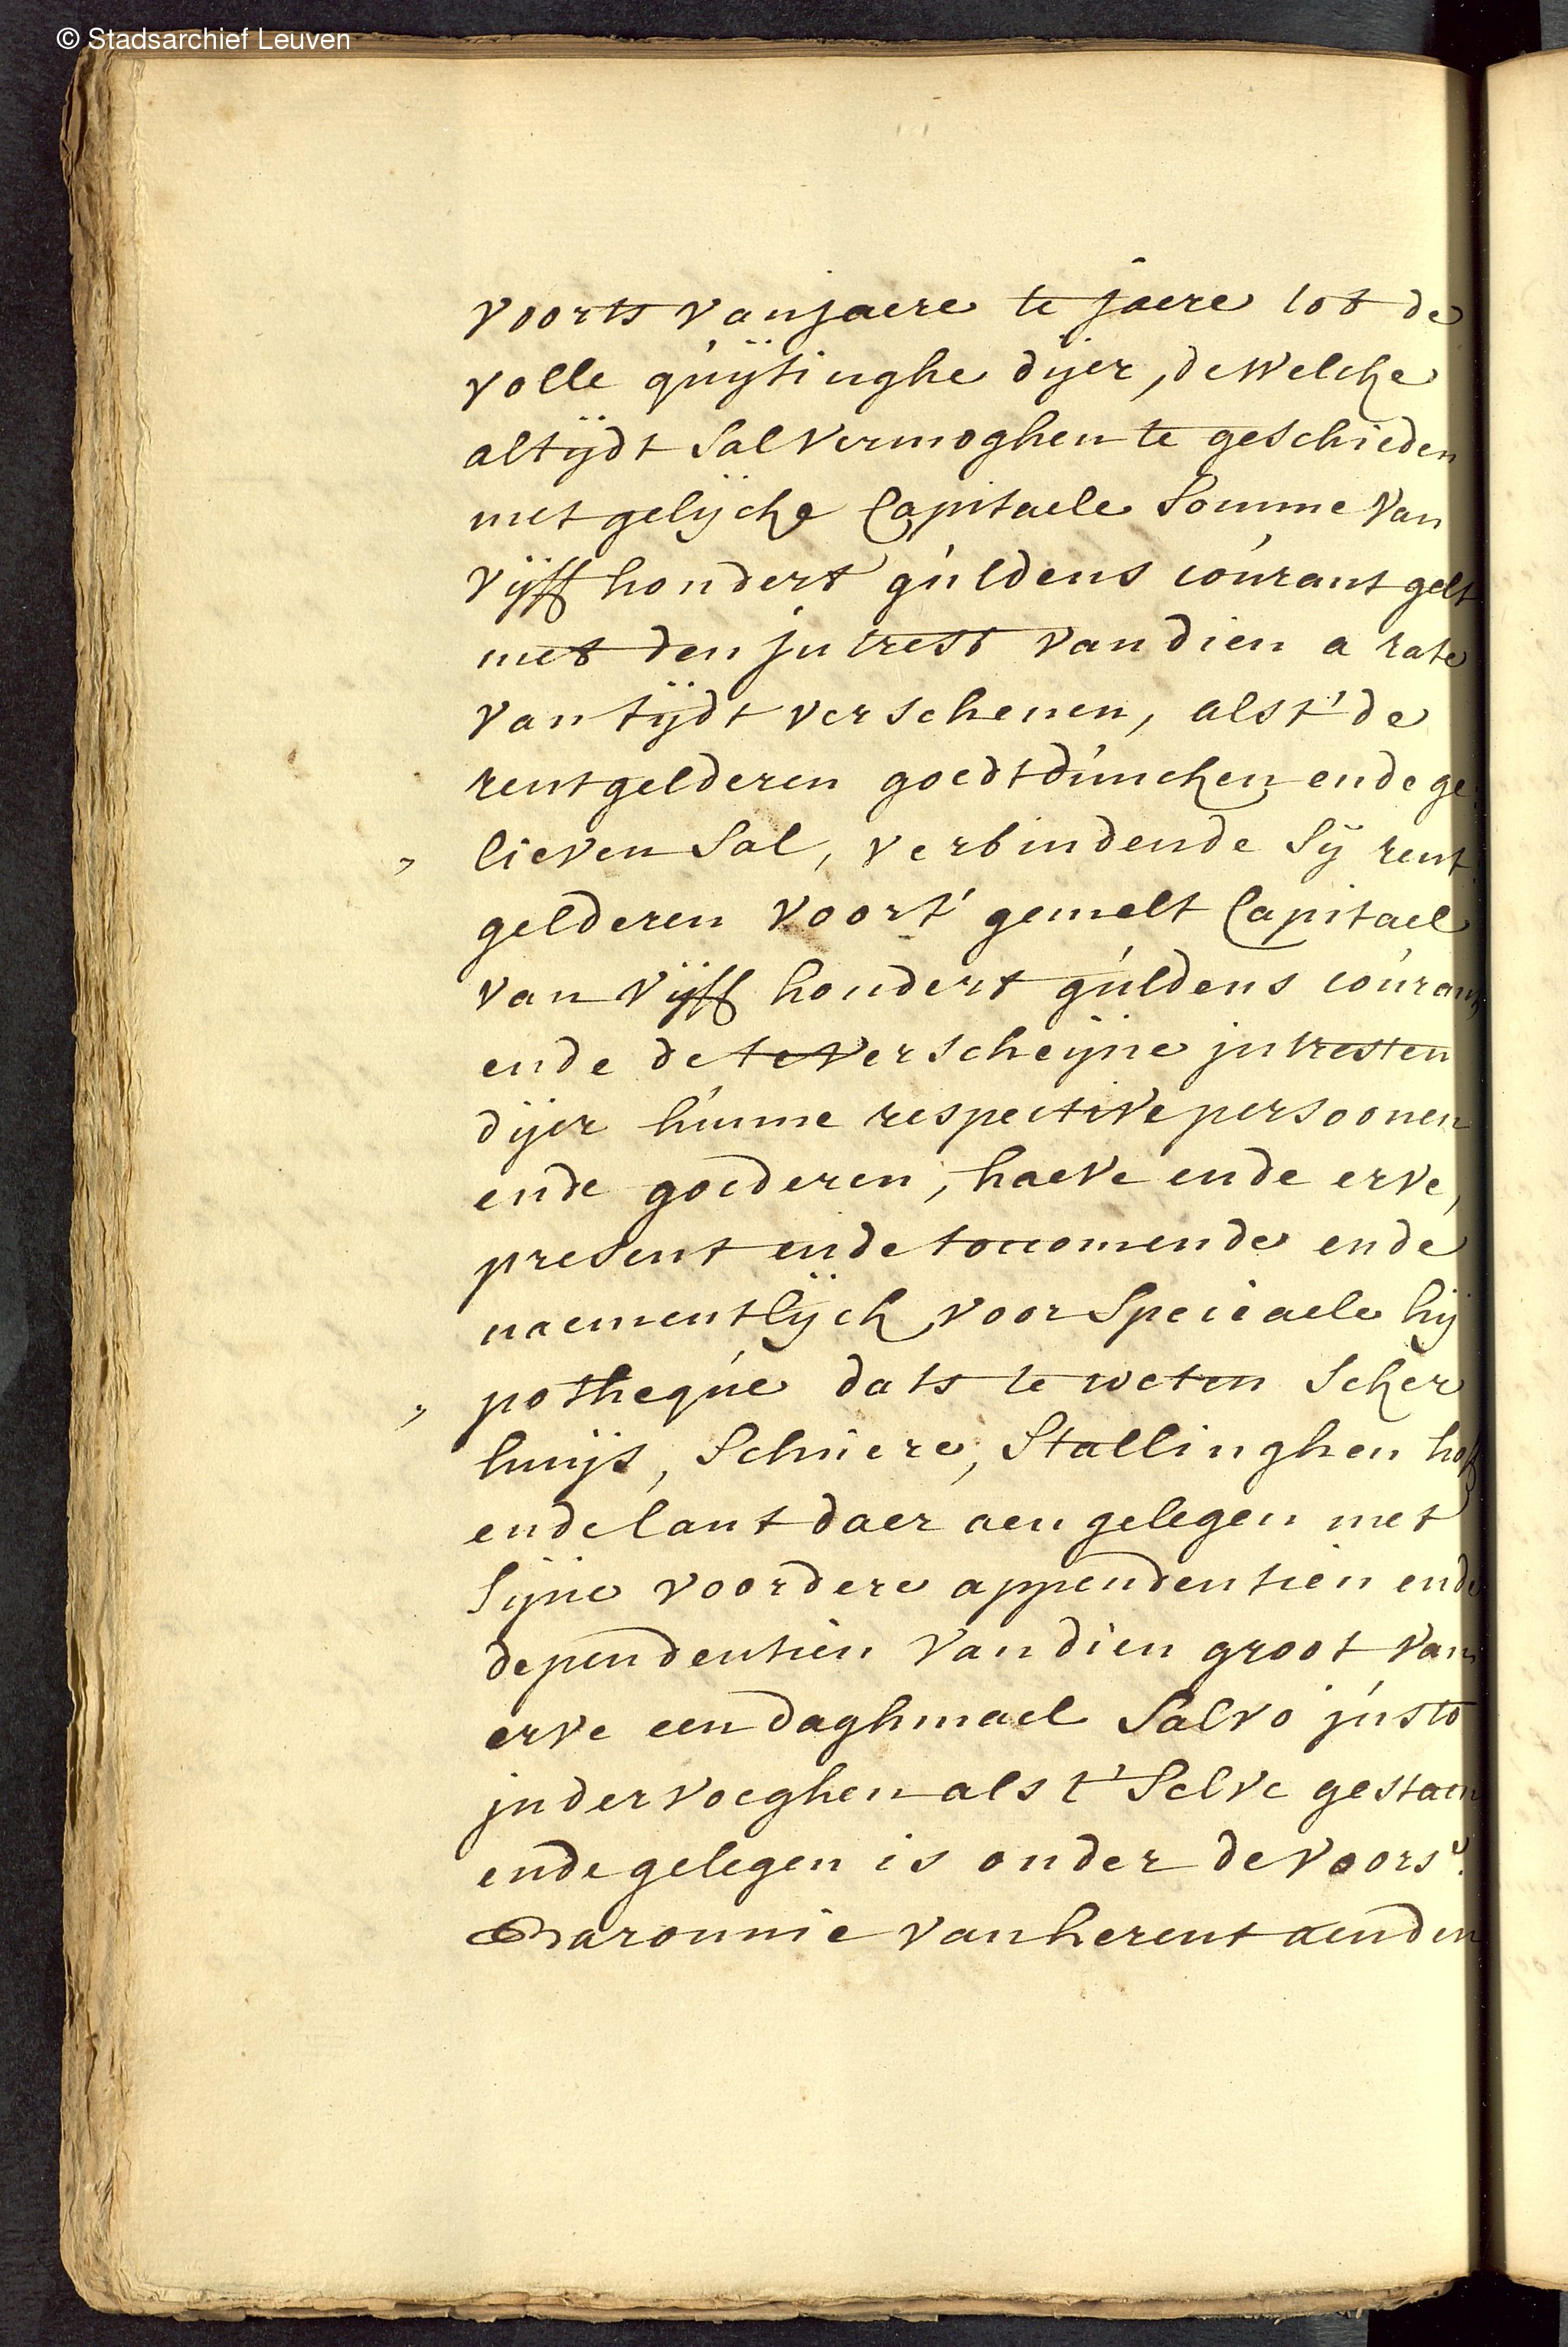 © Stadsarchief Leuven
voorts van jaere te jaere tot de
volle quÿtinghe dÿer, de welcke
altÿdt sal vermoghen te geschieden
met gelÿcke Capitaele somme van
vÿff hondert guldens courant gelt
met den intrest van dien a rate
van tÿdt verschenen, als t'de
rentgelderen goedtduncken ende ge:
lieven sal, verbindende sÿ rent:
gelderen voor t' gemelt Capitael
van vÿff hondert guldens courant
ende de te verscheÿne intresten
dÿer hunne respective persoonen
ende goederen, haeve ende erve,
present ende toecomende ende
naementlÿck voor speciaele hÿ
potheque dats te weten seker
huÿs, schuere, stallinghen hoff
ende lant daer aen gelegen met
sÿne voordere appendentien ende
dependentien van dien groot van
erve een daghmael salvo justo
in der voeghen als t'selve gestaen
ende gelegen is onder de voors.
Baronnie van herent aen den